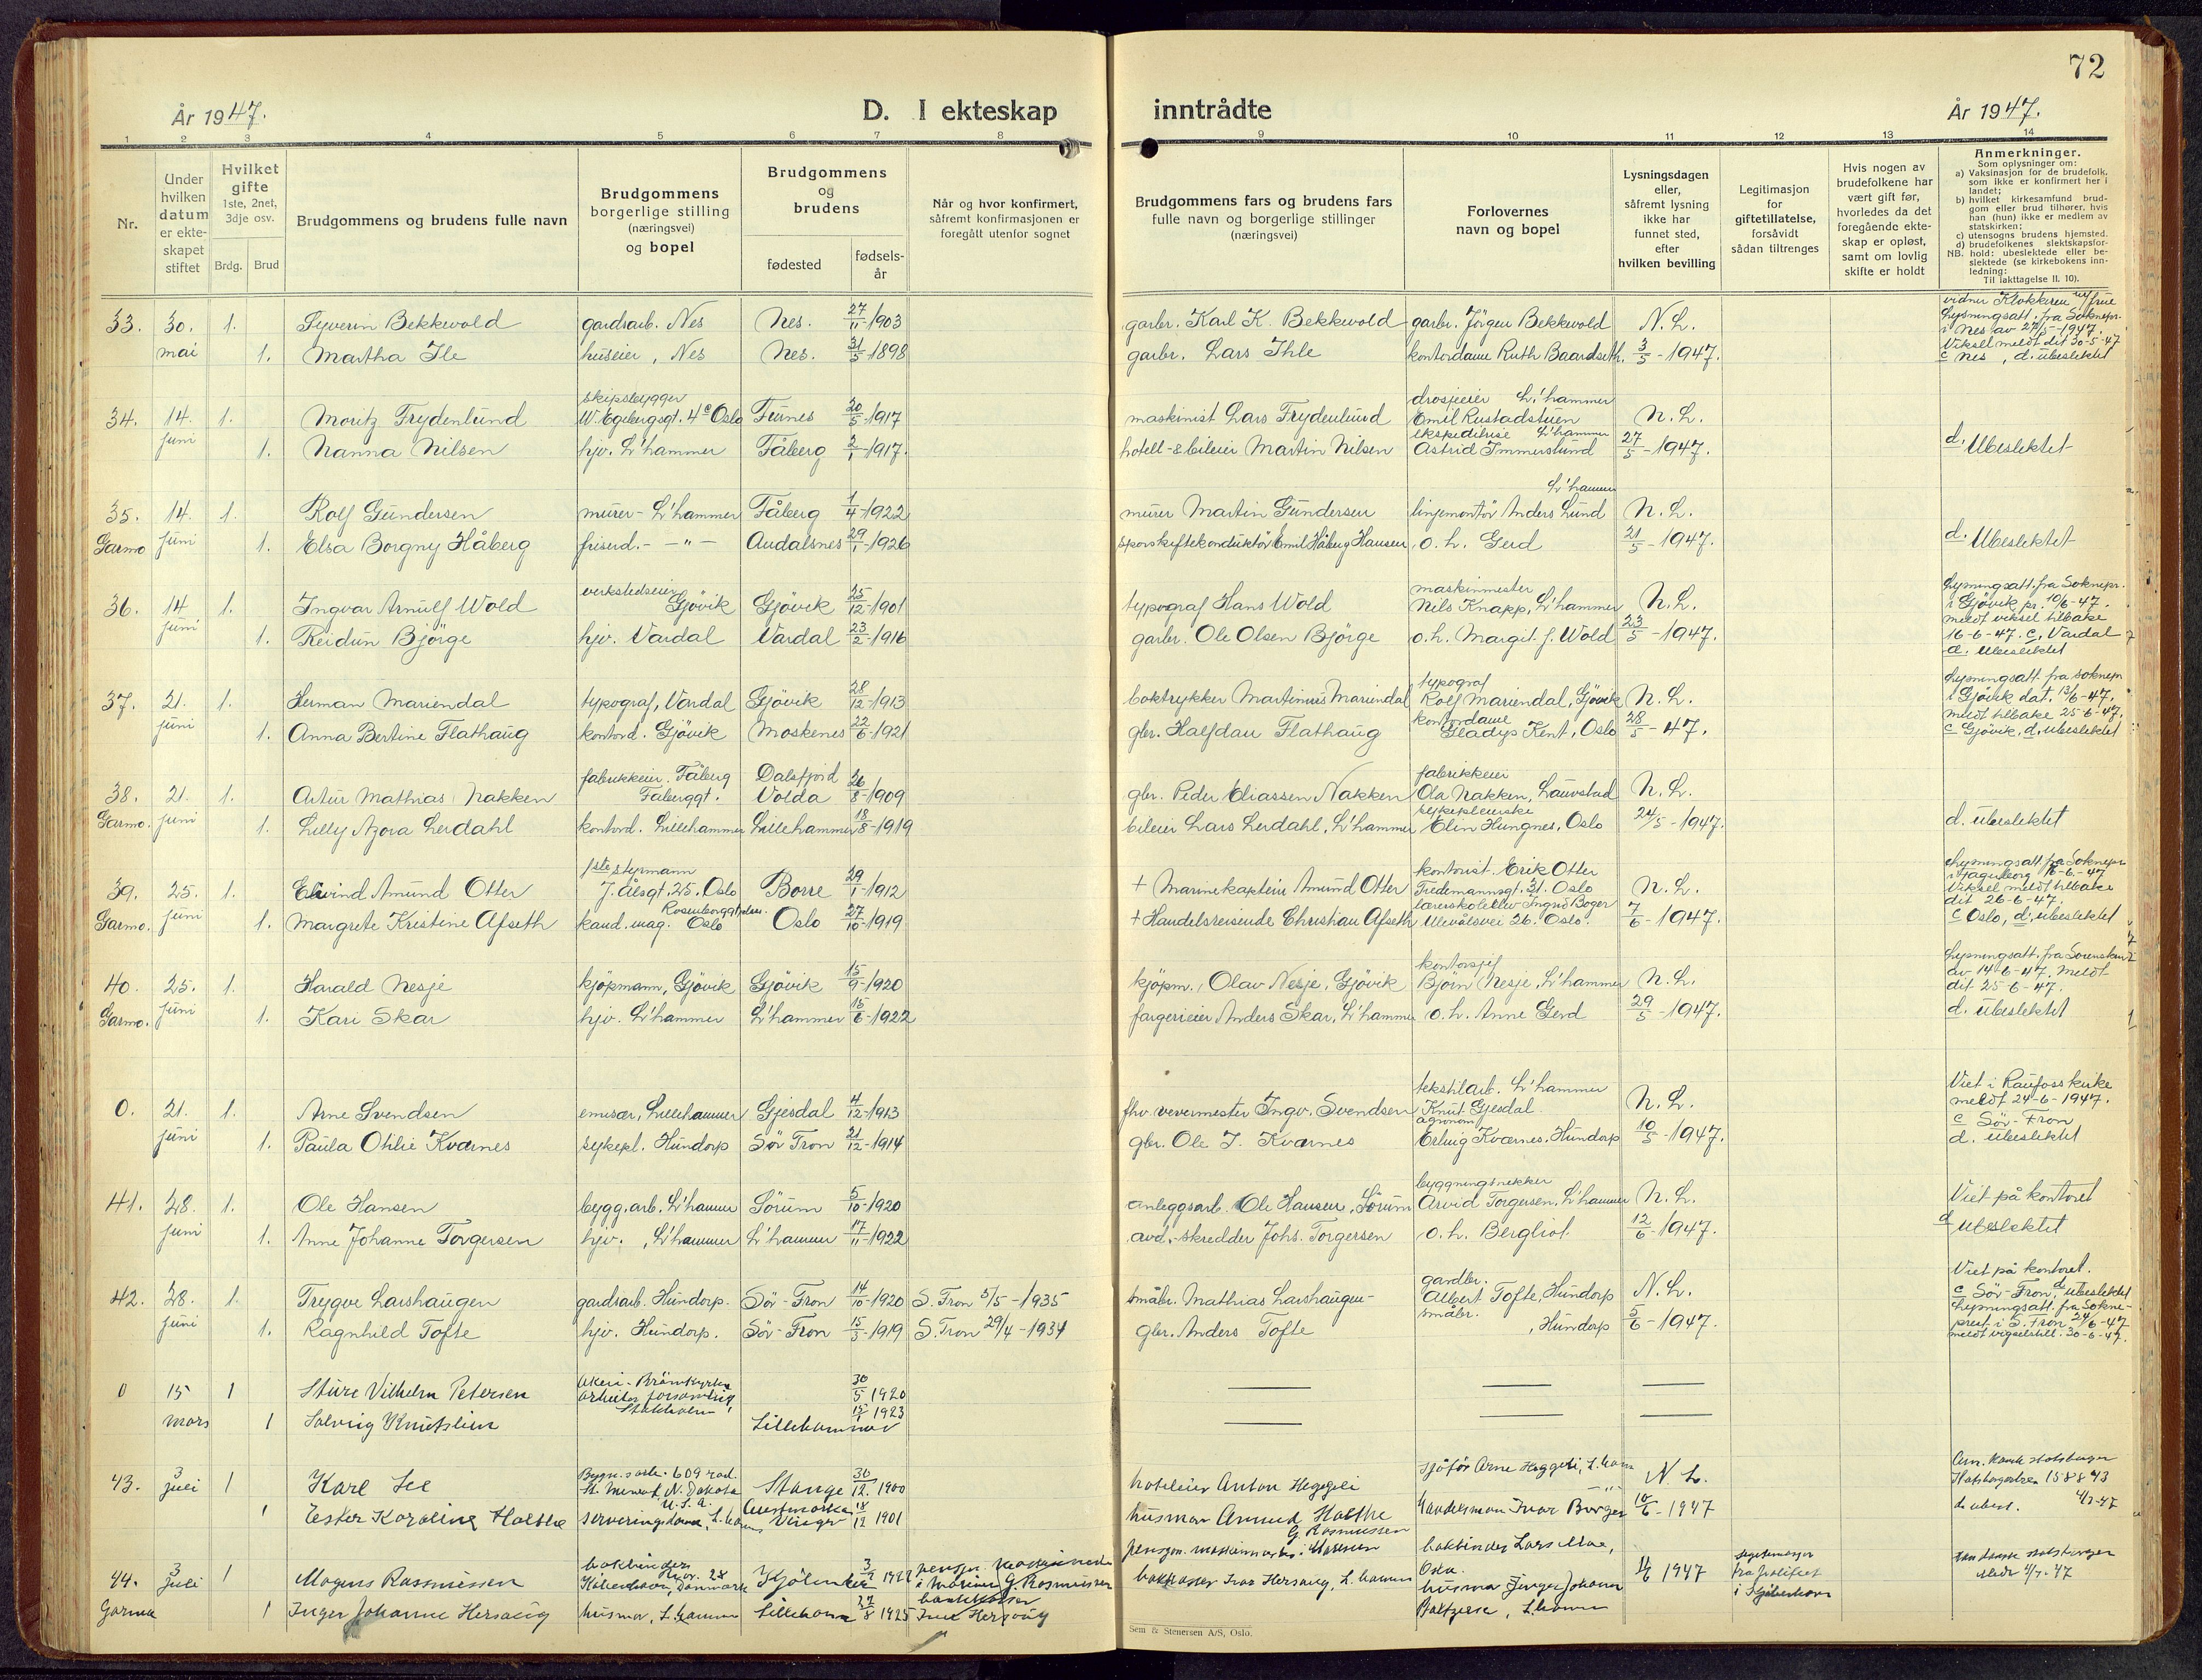 72
År 1947.
D. I ekteskap inntrådte
År 1947.
1 2 3 4 5 6 7 8 9 10 11 12 13 14
Nr.
Under hvilken datum er ekteskapet stiftet
Hvilket gifte 1ste, 2net, 3dje osv.
Brdg. Brud
Brudgommens og brudens fulle navn
Brudgommens borgerlige stilling (næringsvei) og bopel
Brudgommens og brudens
fødested
fødselsår
Når og hvor konfirmert, såfremt konfirmasjonen er foregått utenfor sognet
Brudgommens fars og brudens fars fulle navn og borgerlige stillinger (næringsvei)
Forlovernes navn og bopel
Lysningsdagen eller, såfremt lysning ikke har funnet sted, efter hvilken bevilling
Legitimasjon for giftetillatelse, forsåvidt sådan tiltrenges
Hvis nogen av brudefolkene har vært gift før, hvorledes da det foregående ekteskap er opløst, samt om lovlig skifte er holdt
Anmerkninger.
Som oplysninger om:
a) Vaksinasjon for de brudefolk, som ikke er konfirmert her i landet;
b) hvilket kirkesamfund brudgom eller brud tilhører, hvis han (hun) ikke er medlem av statskirken;
c) utensogns brudens hjemsted.
d) brudefolkenes slektskapsforhold: ubeslektede eller beslektede (se kirkebokens innledning:
NB.
Til iakttagelse II. 10).
33. 30. 1. Syverin Bekkevold gardsarb. Nes Nes. 27/11-1903 garbr. Karl K. Bekkevold garbr. Jörgen Bekkevold N. L. vidner Klokkeren m/ frue
Lysningsatt. fra Soknepr. i Nes av 27/5-1947.
mai 1. Martha Ile huseier, Nes Nes. 31/5-1898 garbr. Lars Ihle kontordame Ruth Baardseth. 3/5-1947. Viksel meldt dit 30-5-47
c Nes, d. ubeslektet
skipsbygger drosjeeier L'hammer
34. 14. 1. Moritz Frydenlund W. Egebergsgt. 4c Oslo Furnes 20/5-1917 maskinist Lars Frydenlund Emil Rustadstuen N. L.
ekspeditrise L'hammer
juni 1. Nanna Nilsen hjv. L'hammer Fåberg 2/1-1917. hotell-& bileier Martin Nilsen Astrid Immerslund 27/5-1947. d. Ubeslektet
L'hammer
35. 14. 1. Rolf Gundersen murer- L'hammer Fåberg 1/4-1922 murer Martin Gundersen linjemontör Anders Lund N. L.
Garmo juni 1. Elsa Borgny Håberg friserd. - " - Åndalsnes 29/1-1926 sporskiftekonduktör Emil Håberg Hansen o. h. Gerd 21/5-1947. d. Ubeslektet
verkstedseier maskinmester Lysningsatt. fra Soknepr.
36. 14 1. Ingvar Arnulf Wold Gjövik Gjövik 25/12-1901 typograf Hans Wold Nils Knapp, L'hammer N. L. i Gjövik pr. 10/6-47.
meldt viksel tilbake
juni 1. Reidun Björge hjv. Vardal Vardal 23/2-1916 garbr. Ole Olsen Björge o. h. Margit f. Wold 23/5-1947. 16-6-47. c, Vardal
d. ubeslektet
typograf Lysningsatt fra soknepr
37. 21. 1. Herman Mariendal typograf, Vardal Gjövik 28/12-1913 boktrykker Martinius Mariendal Rolf Mariendal, Gjövik N. L. i Gjövik dat. 13/6-47.
kontordame meldt tilbake 25-6-47.
juni 1. Anna Bertine Flathaug kontord. Gjövik Moskenes 22/6-1921 gbr. Halfdan Flathaug Gladys Kent, Oslo 28/5-47. c Gjövik, d, ubeslektet
fabrikkeier. Fåberg Dalsfjord fabrikkeier
38. 21. 1. Artur Mathias Nakken Fåberggt. Volda 26/8-1909 gbr. Peder Eliassen Nakken Ola Nakken, Lauvstad N. L.
sykepleierske
Garmo. juni 1. Lilly Azora Lerdahl kontord. Lillehammer Lillehammer 18/8-1919 bileier Lars Lerdahl, L'hammer Elin Hungnes, Oslo 24/5-1947. d. ubeslektet
1ste styrmann kontorist. Erik Otter Lysningsatt. fra Soknepr
39. 25. 1. Eivind Amund Otter J. Ålsgt. 25. Oslo Borre 29/1-1912 + Marinekaptein Amund Otter Tidemannsgt. 31. Oslo N. L. i Fagerborg 16-6-47
Viksel meldt tilbake
lærerskoleelev Ingrid Boger dit 26-6-47.
Garmo. juni 1. Margrete Kristine Afseth kand. mag. Oslo Oslo 27/10-1919. + Handelsreisende Christian Afseth Ullevålsvei 26. Oslo. 7/6-1947. c Oslo, d, ubeslektet
kontorsjef
40. 25. 1. Harald Nesje kjöpmann, Gjövik Gjövik 15/9-1920 kjöpm., Olav Nesje, Gjövik Björn Nesje, L'hammer N. L. av 14-6-47. meldt
dit 25-6-47.
Garmo. juni 1. Kari Skar hjv. L'hammer L'hammer 15/6-1922 fargerieier Anders Skar, L'hammer o. h. Anne Gerd 29/5-1947. d. ubeslektet
tekstilarb. L'hammer Viet i Raufoss kirke
0. 21. 1. Arne Svendsen emisær, Lillehammer Gjesdal 4/12-1913 fhv. vevermester Ingv. Svendsen Knut Gjesdal. N. L. meldt 24-6-1947.
agronom c Sör-Fron
juni 1. Paula Otilie Kvarnes sykepl. Hundorp Sör Fron 21/12-1914 gbr. Ole J. Kvarnes Erling Kvarnes. Hundorp 10/5-1947. d. ubeslektet
byggningssnekker
41. 28. 1. Ole Hansen bygg. arb. L'hammer Sörum 5/10-1920 anleggsarb. Ole Hansen, Sörum Arvid Torgersen, L'hammer N. L. Viet på kontoret
juni 1. Anne Johanne Torgersen hjv. , L'hammer L'hammer 17/11-1922 avd.-skredder Johs. Torgersen o. h. Bergliot 12/6-1947. d ubeslektet
gardbr. Viet på kontoret.
42. 28. 1. Trygve Larshaugen gardsarb. Hundorp. Sör-Fron 14/10-1920 S. Fron 5/5-1935 småbr. Mathias Larshaugen- Albert Tofte, Hundorp N. L. c Sör-Fron, d, ubeslektet
småbr. Lysningsatt. fra Sokne-
juni 1. Ragnhild Tofte hjv. Hundorp. Sör-Fron 15/5-1919 S. Fron 29/4-1934 gbr. Anders Tofte , Hundorp 5/6-1947. prest i S. Fron 24/6-47
meldt vigselstill. 30-6-47.
0 15 1 Sture Vilhelm Petersen Stockholm 30/5 1920
mars 1 Solveig Knutslien Lillehammer 15/1 1923
43. 3 juli 1 Karl Lee N. Dakota U.S.A. Stange 30/12 1900 hoteleier Anton Heggeli sjåför Arne Heggeli, L.ham N. L. Am. statsborger
1 Ester Karoline Holthe serveringsdame, L. hamm 1901 husmor Amund Holthe Handelsmann Ivar Borger 10/6-1947 d. ubesl. 4/7-47
44. 3 juli 1 Mogens Rasmussen bokbinder København, Danmark 1922 G. Rasmussen bokbinder Lars Moe, Oslo 11/6 1947 i København
Garmo 1 Inger Johanne Hersaug husmor, L.hammer Lillehamm 27/8 1925 Ivar Hersaug, L. hammer husmor Inger Johanne L.hamm
Sem & Stenersen A/S, Oslo.